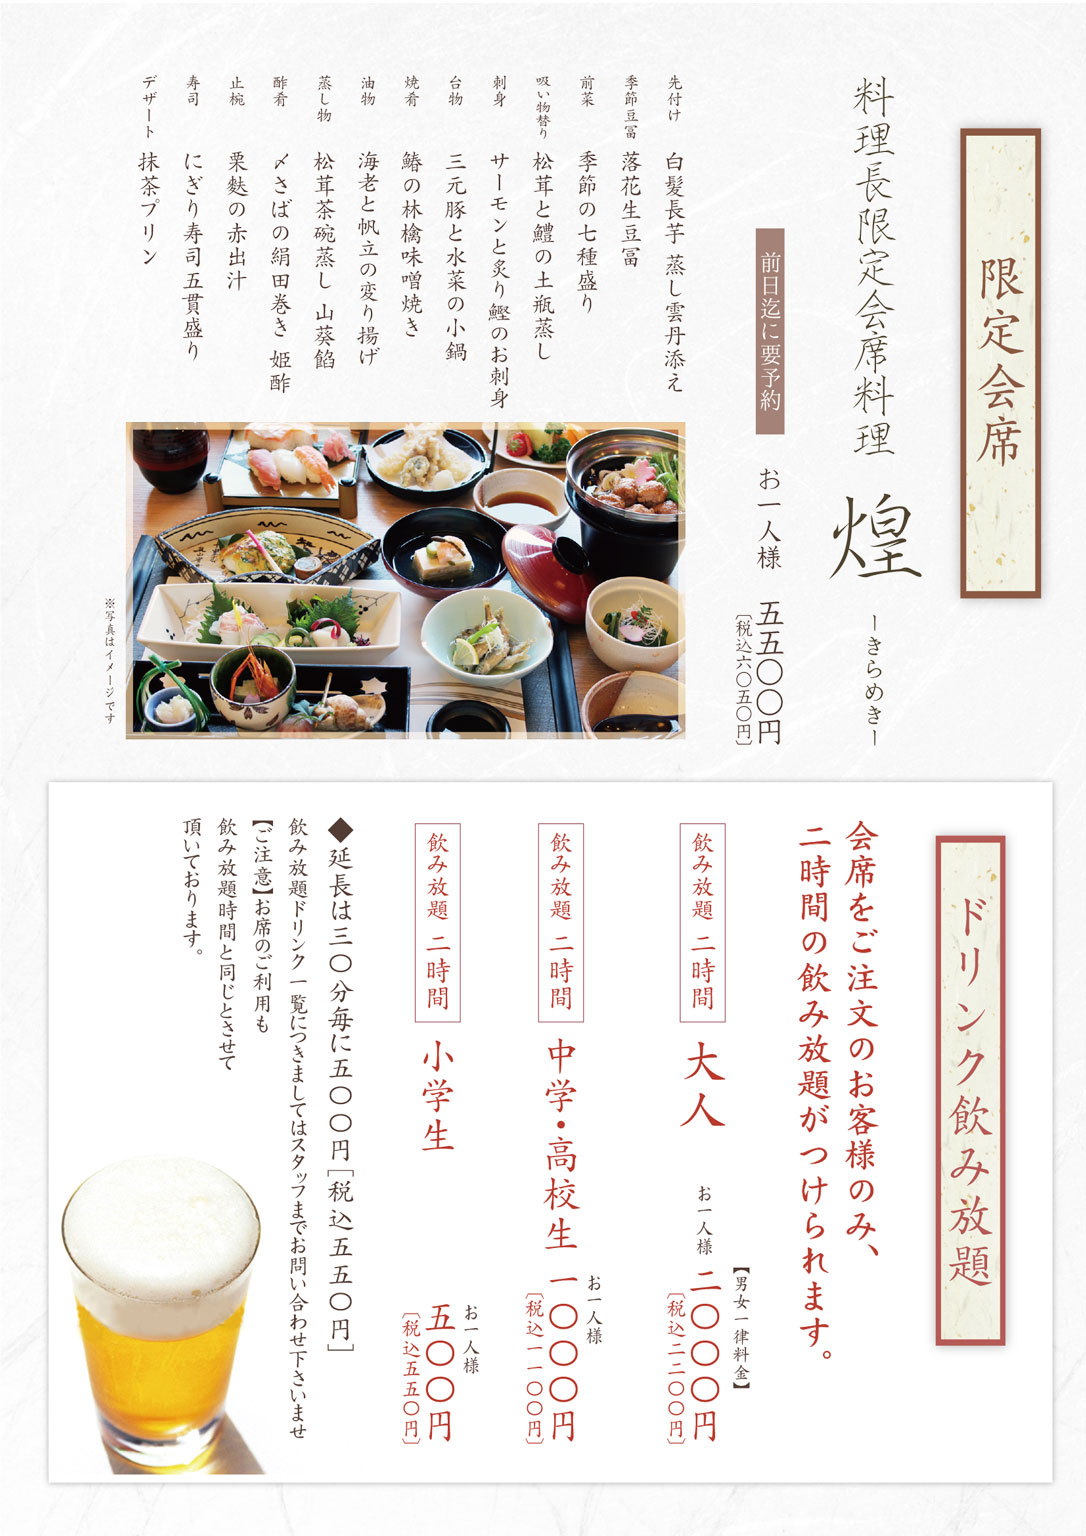 限定会席
料理長限定会席料理 煌 ーきらめきー
前日迄に要予約 お一人様 五五〇〇円
［税込六〇五〇円］
先付け 白髪長芋 蒸し雲丹添え
季節豆冨 落花生豆冨
前菜 季節の七種盛り
吸い物替り 松茸と鱧の土瓶蒸し
刺身 サーモンと炙り鰹のお刺身
台物 三元豚と水菜の小鍋
焼肴 鰆の林檎味噌焼き
油物 海老と帆立の変り揚げ
蒸し物 松茸茶碗蒸し 山葵餡
酢肴 〆さばの絹田巻き 姫酢
止椀 栗麩の赤出汁
寿司 にぎり寿司五貫盛り
デザート 抹茶プリン
※写真はイメージです
ドリンク飲み放題
会席をご注文のお客様のみ、
二時間の飲み放題がつけられます。
【男女一律料金】
飲み放題 二時間 大人 お一人様 二〇〇〇円
［税込二二〇〇円］
飲み放題 二時間 中学・高校生 お一人様 一〇〇〇円
［税込一一〇〇円］
飲み放題 二時間 小学生 お一人様 五〇〇円
［税込五五〇円］
◆延長は三〇分毎に五〇〇円［税込五五〇円］
飲み放題ドリンク一覧につきましてはスタッフまでお問い合わせ下さいませ
【ご注意】お席のご利用も
飲み放題時間と同じとさせて
頂いております。